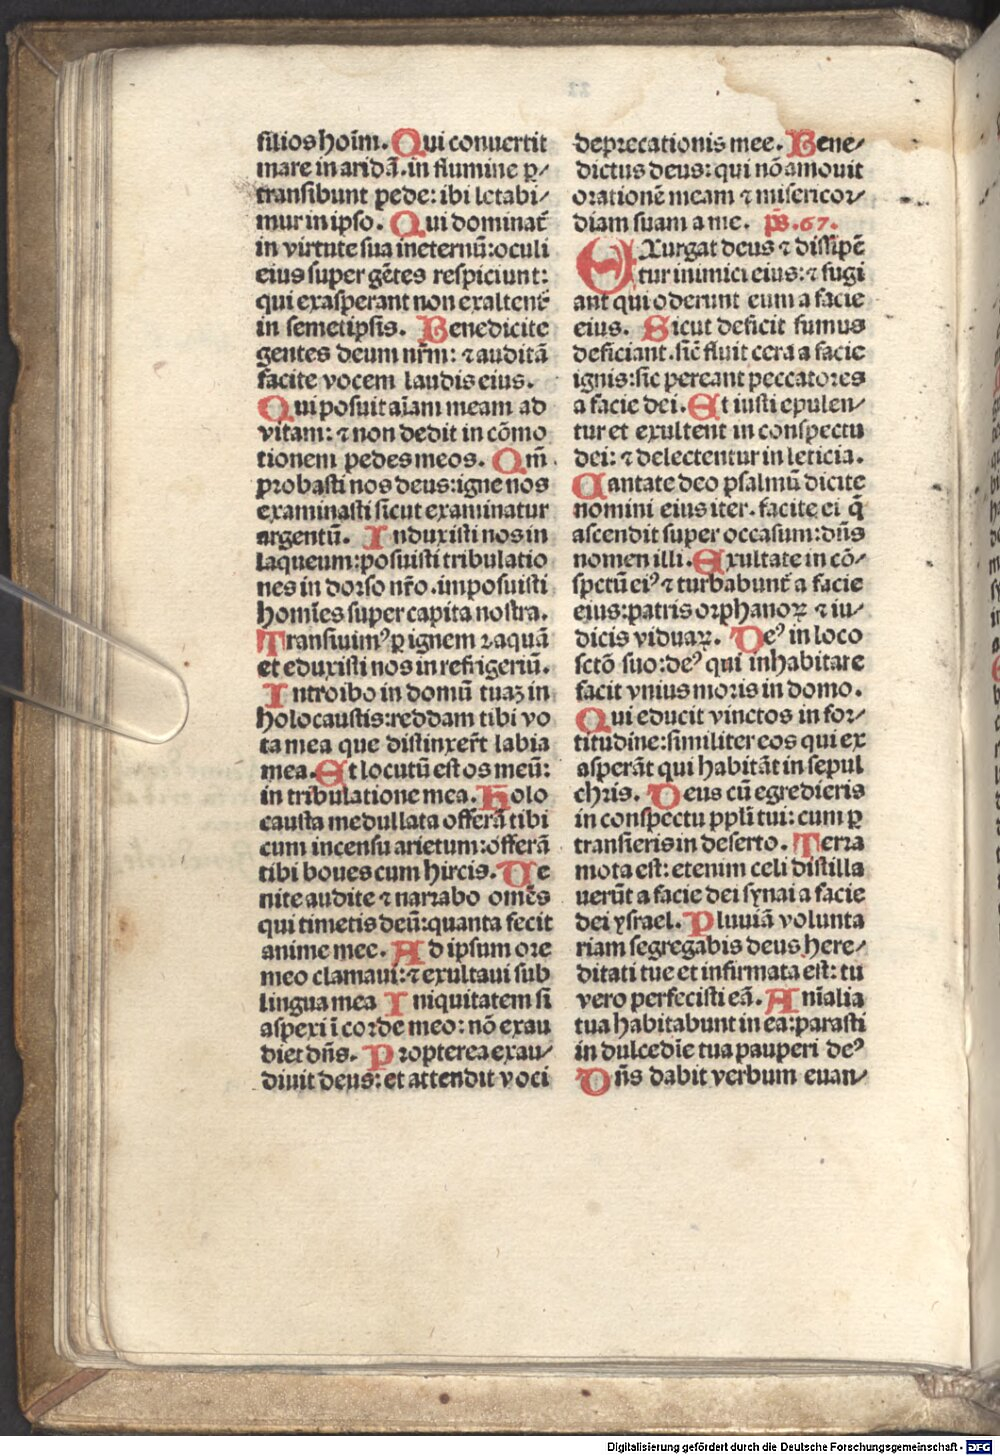 filios hoīm. Qui conuertit
mare in aridā. in flumine ꝑ-
transibunt pede: ibi letabi-
mur in ipso. Qui dominat̄
in virtute sua ineternū: oculi
eius super gētes respiciunt:
qui exasperant non exaltent̄
in semetipsis. Benedicite
gentes deum nr̄m: ⁊ auditā
facite vocem laudis eius.
Qui posuit aīam meam ad
vitam: ⁊ non dedit in cōmo
tionem pedes meos. Qm̄
probasti nos deus: igne nos
examinasti sicut examinatur
argentū. Induxisti nos in
laqueum: posuisti tribulatio
nes in dorso nr̄o. imposuisti
homīes super capita nostra.
Transiuimꝰ ꝑ ignem ⁊ aquā
et eduxisti nos in refrigeriū.
Introibo in domū tuaꝫ in
holocaustis: reddam tibi vo
ta mea que distinxer̄t labia
mea. Et locutū est os meū:
in tribulatione mea. Holo
causta medullata offerā tibi
cum incensu arietum: offerā
tibi boues cum hircis. Ue
nite audite ⁊ narrabo omēs
qui timetis deū: quanta fecit
anime mee. Ad ipsum ore
meo clamaui: ⁊ exultaui sub
lingua mea Iniquitatem si
aspexi ī corde meo: nō exau
diet dn̄s. Propterea exau-
diuit deus: et attendit voci
deprecationis mee. Bene-
dictus deus: qui nō amouit
orationē meam ⁊ misericor-
diam suam a me. ps̄. 67.
EXurgat deus ⁊ dissipē
tur inimici eius: ⁊ fugi
ant qui oderunt eum a facie
eius. Sicut deficit fumus
deficiant. sic̄ fluit cera a facie
ignis: sic pereant peccatores
a facie dei. Et iusti epulen-
tur et exultent in conspectu
dei: ⁊ delectentur in leticia.
Cantate deo psalmū dicite
nomini eius iter. facite ei q̄
ascendit super occasum: dn̄s
nomen illi. Exultate in cō-
spctū eiꝰ ⁊ turbabunt̄ a facie
eius: patris orphanoꝝ ⁊ iu-
dicis viduaꝝ. Deꝰ in loco
sctō suo: deꝰ qui inhabitare
facit vnius moris in domo.
Qui educit vinctos in for-
titudine: similiter eos qui ex
asperāt qui habitāt in sepul
chris. Deus cū egredieris
in conspectu ppl̄i tui: cum ꝑ
transieris in deserto. Terra
mota est: etenim celi distilla
uerūt a facie dei synai a facie
dei ysrael. Pluuiā volunta
riam segregabis deus here-
ditati tue et infirmata est: tu
vero perfecisti eā. Anīalia
tua habitabunt in ea: parasti
in dulcedīe tua pauperi deꝰ
Dn̄s dabit verbum euan-
Digitalisierung gefördert durch die Deutsche Forschungsgemeinschaft - DFG